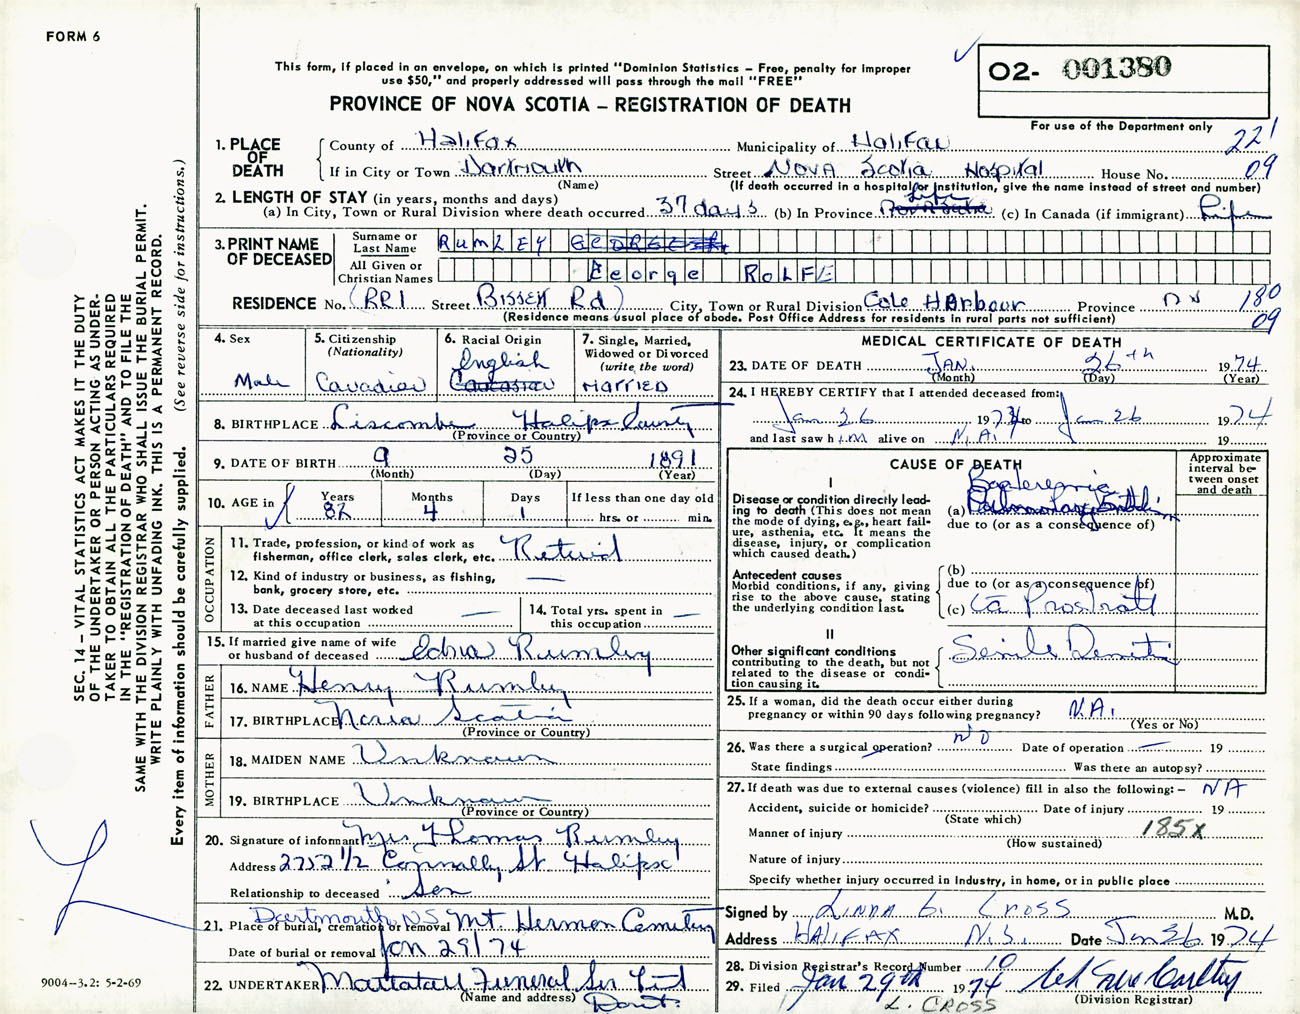 FORM 6
This form, if placed in an envelope, on which is printed "Dominion Statistics – Free, penalty for improper
use $50," and properly addressed will pass through the mail "FREE"
O2- 001380
PROVINCE OF NOVA SCOTIA – REGISTRATION OF DEATH
For use of the Department only
221
09
1. PLACE OF DEATH
County of Halifax Municipality of Halifax
If in City or Town Dartmouth Street Nova Scotia Hospital House No.
(Name) (If death occurred in a hospital or institution, give the name instead of street and number)
2. LENGTH OF STAY (in years, months and days)
(a) In City, Town or Rural Division where death occurred 37 days (b) In Province Life (c) In Canada (if immigrant) Life
3. PRINT NAME OF DECEASED
Surname or Last Name RUMLEY GEORGE
All Given or Christian Names George ROLFE
RESIDENCE No. (RR1 Street Bissett Rd) City, Town or Rural Division Cole Harbour Province NS
180
09
(Residence means usual place of abode. Post Office Address for residents in rural parts not sufficient)
4. Sex
Male
5. Citizenship
(Nationality)
Canadian
6. Racial Origin
English
Caucasian
7. Single, Married,
Widowed or Divorced
(write the word)
MARRIED
8. BIRTHPLACE Liscombe Halifax County
(Province or Country)
9. DATE OF BIRTH 9 25 1891
(Month) (Day) (Year)
10. AGE in
Years 82
Months 4
Days 1
If less than one day old
hrs. or min.
OCCUPATION
11. Trade, profession, or kind of work as
fisherman, office clerk, sales clerk, etc. Retired
12. Kind of industry or business, as fishing,
bank, grocery store, etc. —
13. Date deceased last worked
at this occupation —
14. Total yrs. spent in
this occupation —
15. If married give name of wife
or husband of deceased Edna Rumley
FATHER
16. NAME Henry Rumley
17. BIRTHPLACE Nova Scotia
(Province or Country)
MOTHER
18. MAIDEN NAME Unknown
19. BIRTHPLACE Unknown
(Province or Country)
20. Signature of informant Mrs Thomas Rumley
Address 2752 1/2 Connolly St. Halifax
Relationship to deceased Son
Dartmouth, NS
21. Place of burial, cremation or removal Mt. Hermon Cemetery
Date of burial or removal Jan 29/74
22. UNDERTAKER Mattatall Funeral Ser Ltd
(Name and address) Dart.
MEDICAL CERTIFICATE OF DEATH
23. DATE OF DEATH JAN. 26th 1974
(Month) (Day) (Year)
24. I HEREBY CERTIFY that I attended deceased from:
Jan 26 1974 to Jan 26 1974
and last saw him alive on N.A. 19
CAUSE OF DEATH
Approximate interval between onset and death
I
Disease or condition directly leading to death (This does not mean the mode of dying, e.g., heart failure, asthenia, etc. It means the disease, injury, or complication which caused death.)
Bacteremia
(a) Pulmonary Embolism
due to (or as a consequence of)
Antecedent causes
Morbid conditions, if any, giving rise to the above cause, stating the underlying condition last.
(b)
due to (or as a consequence of)
(c) Ca Prostate
II
Other significant conditions
contributing to the death, but not related to the disease or condition causing it.
Senile Dementia
25. If a woman, did the death occur either during
pregnancy or within 90 days following pregnancy? N.A.
(Yes or No)
26. Was there a surgical operation? NO Date of operation — 19
State findings Was there an autopsy?
27. If death was due to external causes (violence) fill in also the following:– NA
Accident, suicide or homicide? Date of injury 19
(State which)
Manner of injury 185X
(How sustained)
Nature of injury
Specify whether injury occurred in industry, in home, or in public place
Signed by LINDA G. CROSS M.D.
Address HALIFAX N.S. Date Jan 26 1974
28. Division Registrar's Record Number 10
29. Filed Jan 29th 1974
(Division Registrar)
L. CROSS
SEC. 14 – VITAL STATISTICS ACT MAKES IT THE DUTY
OF THE UNDERTAKER OR PERSON ACTING AS UNDER-
TAKER TO OBTAIN ALL THE PARTICULARS REQUIRED
IN THE "REGISTRATION OF DEATH" AND TO FILE THE
SAME WITH THE DIVISION REGISTRAR WHO SHALL ISSUE THE BURIAL PERMIT.
WRITE PLAINLY WITH UNFADING INK. THIS IS A PERMANENT RECORD.
Every item of information should be carefully supplied. (See reverse side for instructions.)
9004–3.2: 5-2-69